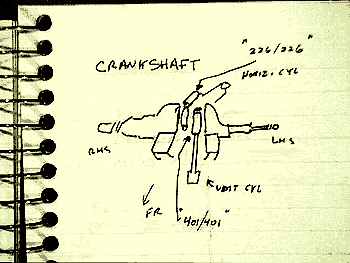 "226/226"
CRANKSHAFT
HORIZ. CYL
RHS
LHS
VERT CYL
FR
"401/401"